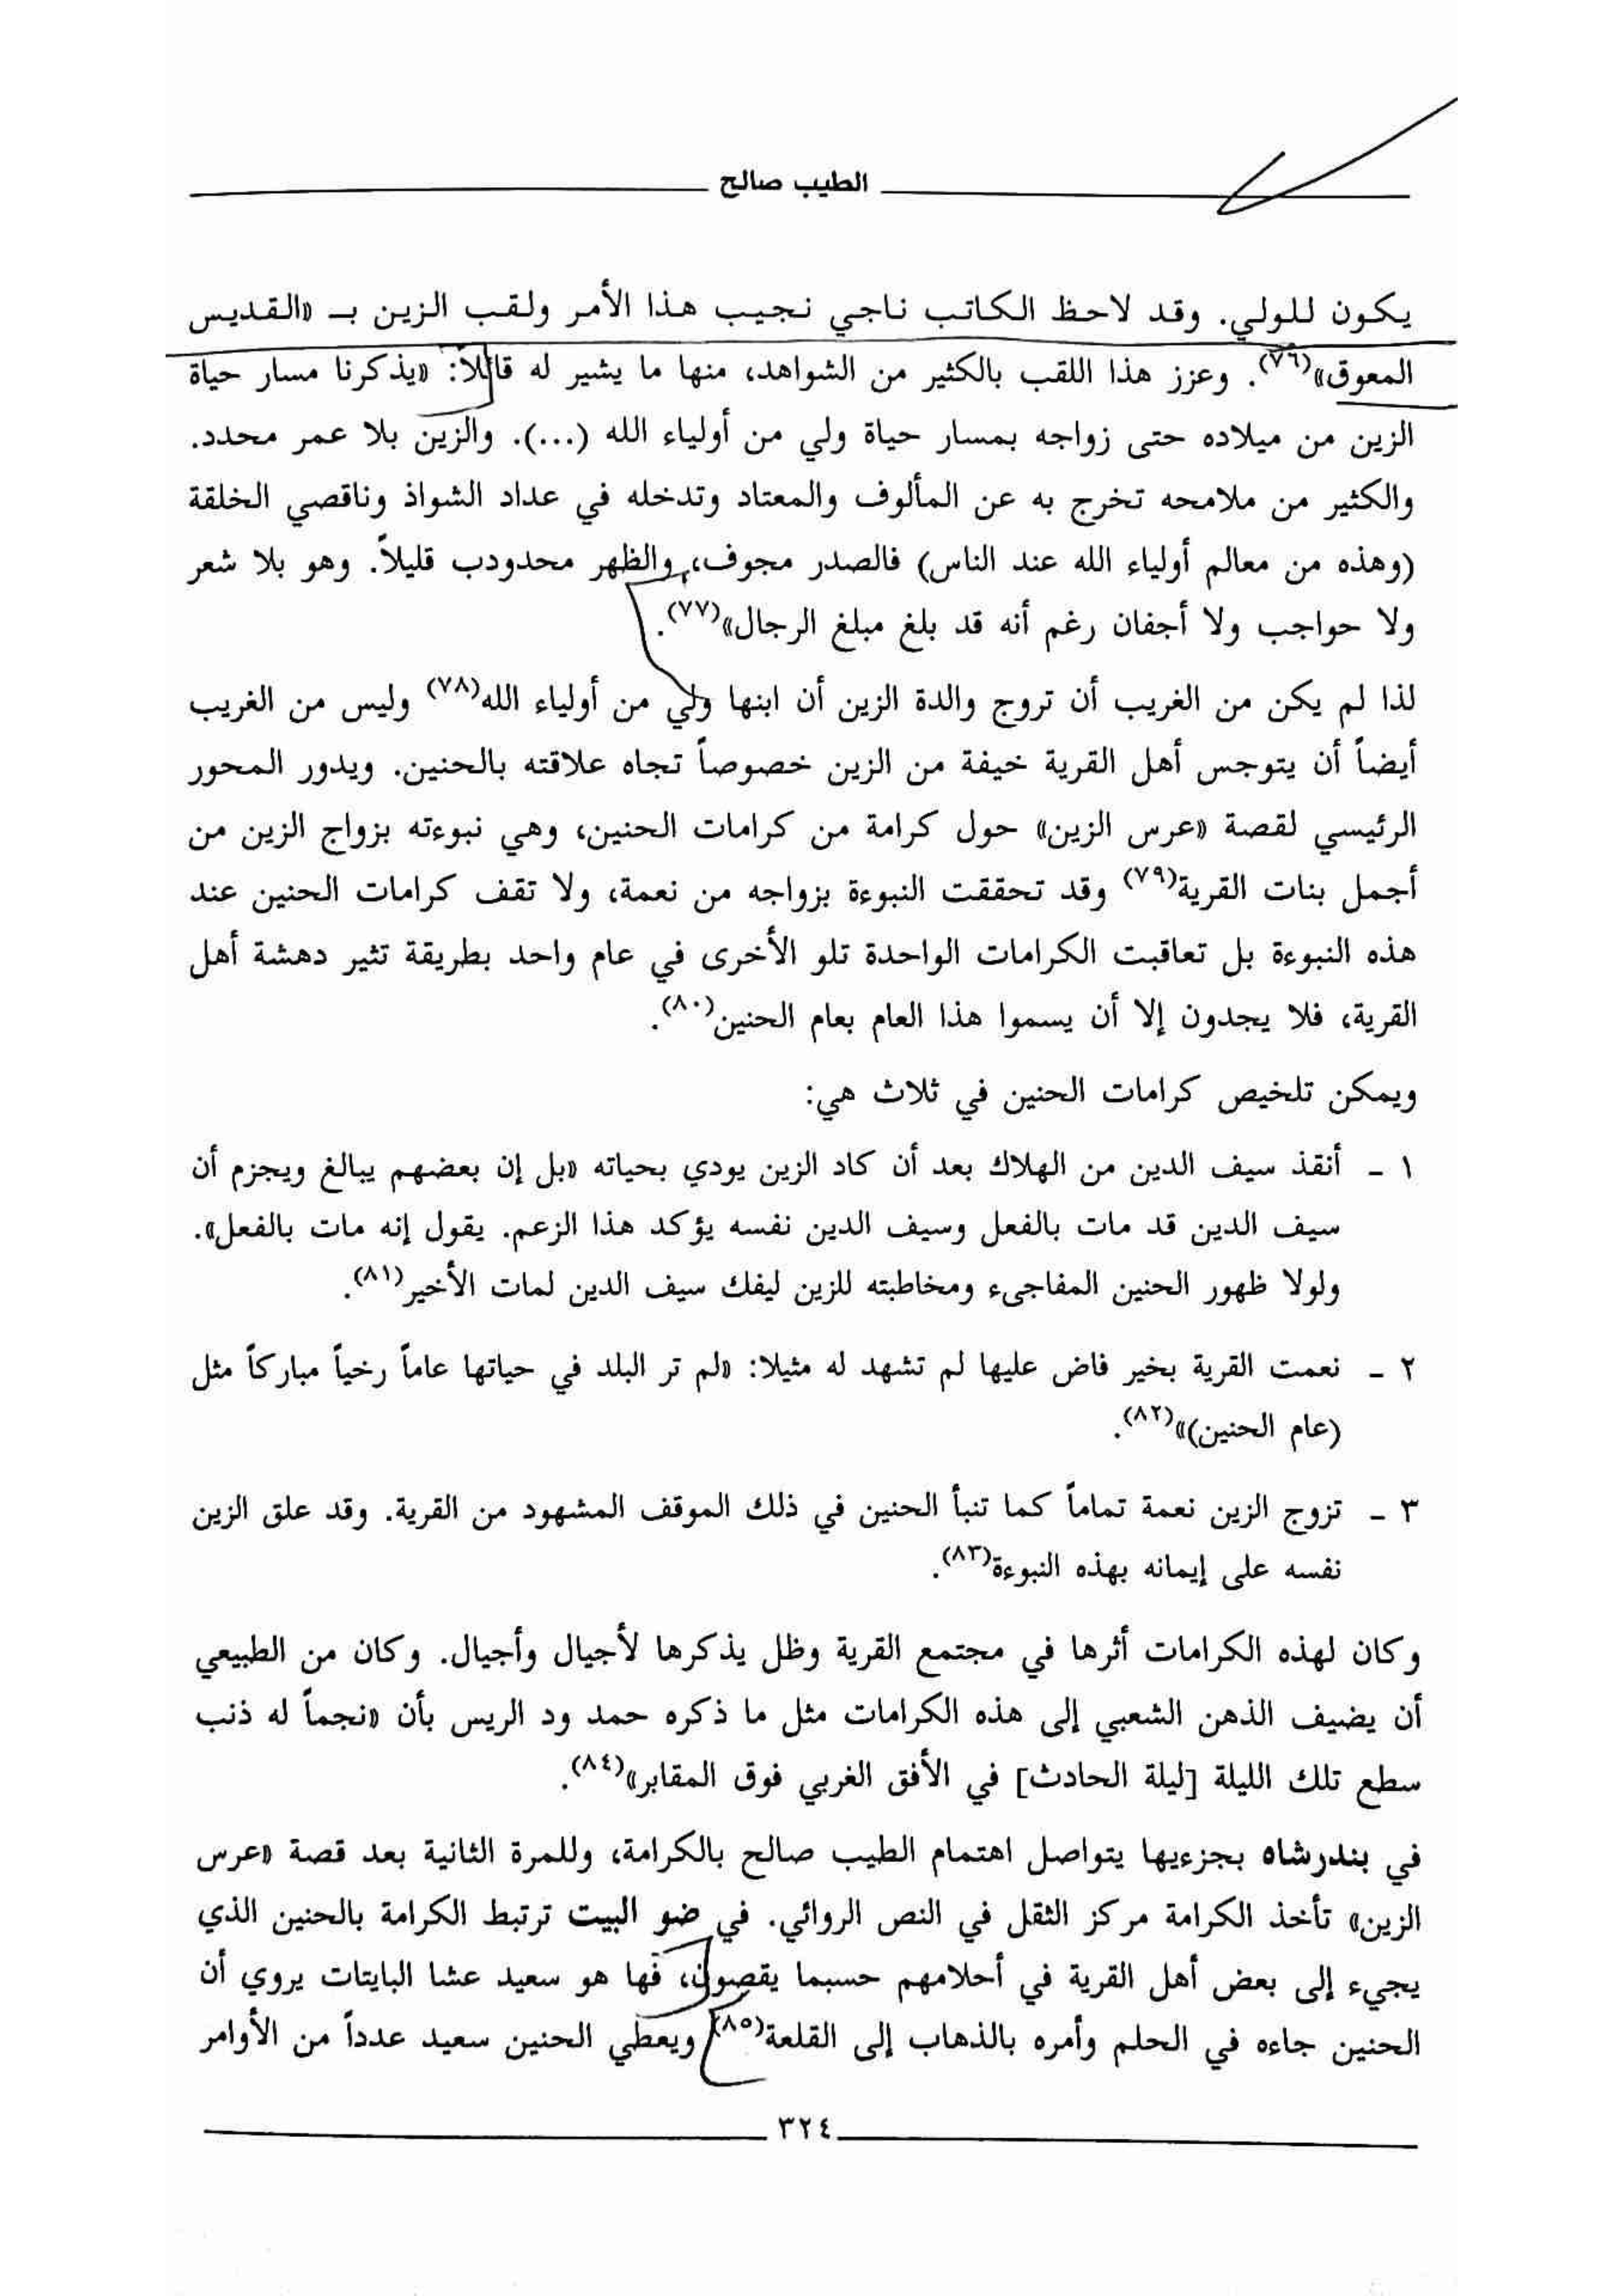 الطيب صالح
يكون للولي. وقد لاحظ الكاتب ناجي نجيب هذا الأمر ولقب الزين بـ «القديس
المعوق»(٧٦). وعزز هذا اللقب بالكثير من الشواهد، منها ما يشير له قائلاً: «يذكرنا مسار حياة
الزين من ميلاده حتى زواجه بمسار حياة ولي من أولياء الله (...). والزين بلا عمر محدد.
والكثير من ملامحه تخرج به عن المألوف والمعتاد وتدخله في عداد الشواذ وناقصي الخلقة
(وهذه من معالم أولياء الله عند الناس) فالصدر مجوف، والظهر محدودب قليلاً. وهو بلا شعر
ولا حواجب ولا أجفان رغم أنه قد بلغ مبلغ الرجال»(٧٧).
لذا لم يكن من الغريب أن تروج والدة الزين أن ابنها ولي من أولياء الله(٧٨) وليس من الغريب
أيضاً أن يتوجس أهل القرية خيفة من الزين خصوصاً تجاه علاقته بالحنين. ويدور المحور
الرئيسي لقصة «عرس الزين» حول كرامة من كرامات الحنين، وهي نبوءته بزواج الزين من
أجمل بنات القرية(٧٩) وقد تحققت النبوءة بزواجه من نعمة، ولا تقف كرامات الحنين عند
هذه النبوءة بل تعاقبت الكرامات الواحدة تلو الأخرى في عام واحد بطريقة تثير دهشة أهل
القرية، فلا يجدون إلا أن يسموا هذا العام بعام الحنين(٨٠).
ويمكن تلخيص كرامات الحنين في ثلاث هي:
١ - أنقذ سيف الدين من الهلاك بعد أن كاد الزين يودي بحياته «بل إن بعضهم يبالغ ويجزم أن
سيف الدين قد مات بالفعل وسيف الدين نفسه يؤكد هذا الزعم. يقول إنه مات بالفعل».
ولولا ظهور الحنين المفاجىء ومخاطبته للزين ليفك سيف الدين لمات الأخير(٨١).
٢ - نعمت القرية بخير فاض عليها لم تشهد له مثيلا: «لم تر البلد في حياتها عاماً رخياً مباركاً مثل
(عام الحنين)»(٨٢).
٣ - تزوج الزين نعمة تماماً كما تنبأ الحنين في ذلك الموقف المشهود من القرية. وقد علق الزين
نفسه على إيمانه بهذه النبوءة(٨٣).
وكان لهذه الكرامات أثرها في مجتمع القرية وظل يذكرها لأجيال وأجيال. وكان من الطبيعي
أن يضيف الذهن الشعبي إلى هذه الكرامات مثل ما ذكره حمد ود الريس بأن «نجماً له ذنب
سطع تلك الليلة [ليلة الحادث] في الأفق الغربي فوق المقابر»(٨٤).
في بندرشاه بجزءيها يتواصل اهتمام الطيب صالح بالكرامة، وللمرة الثانية بعد قصة «عرس
الزين» تأخذ الكرامة مركز الثقل في النص الروائي. في ضو البيت ترتبط الكرامة بالحنين الذي
يجيء إلى بعض أهل القرية في أحلامهم حسبما يقصون، فها هو سعيد عشا البايتات يروي أن
الحنين جاءه في الحلم وأمره بالذهاب إلى القلعة(٨٥) ويعطي الحنين سعيد عدداً من الأوامر
٣٢٤